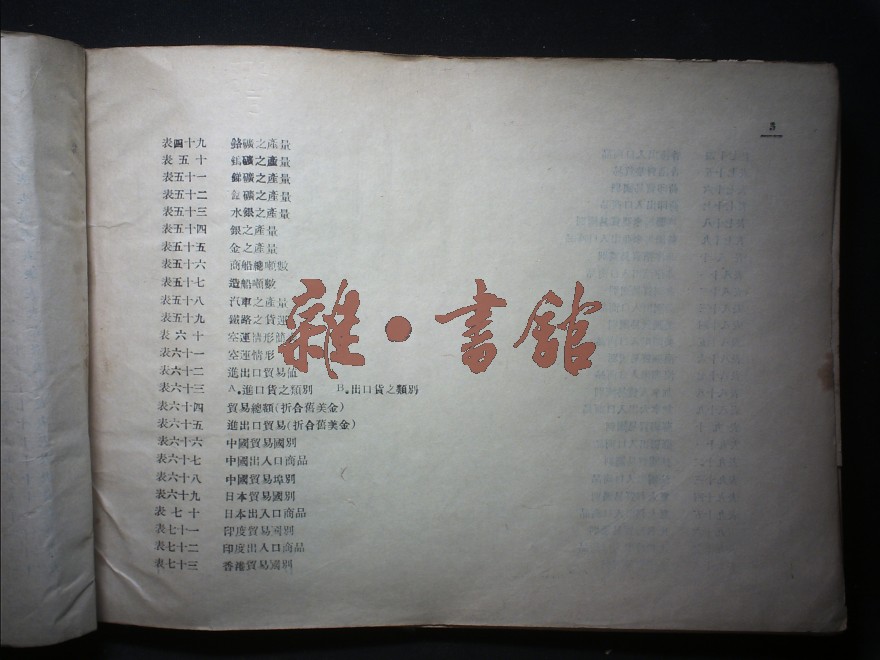 3
表四十九 鉻礦之產量
表五十 鎢礦之產量
表五十一 銻礦之產量
表五十二 礦之產量
表五十三 水銀之產量
表五十四 銀之產量
表五十五 金之產量
表五十六 商船總噸數
表五十七 造船噸數
表五十八 汽車之產量
表五十九 鐵路之貨運
表六十 空運情形
表六十一 空運情形
表六十二 進出口貿易值
表六十三 A.進口貨之類別 B.出口貨之類別
表六十四 貿易總額(折合舊美金)
表六十五 進出口貿易(折合舊美金)
表六十六 中國貿易國別
表六十七 中國出入口商品
表六十八 中國貿易埠別
表六十九 日本貿易國別
表七十 日本出入口商品
表七十一 印度貿易國別
表七十二 印度出入口商品
表七十三 香港貿易國別
雜·書館